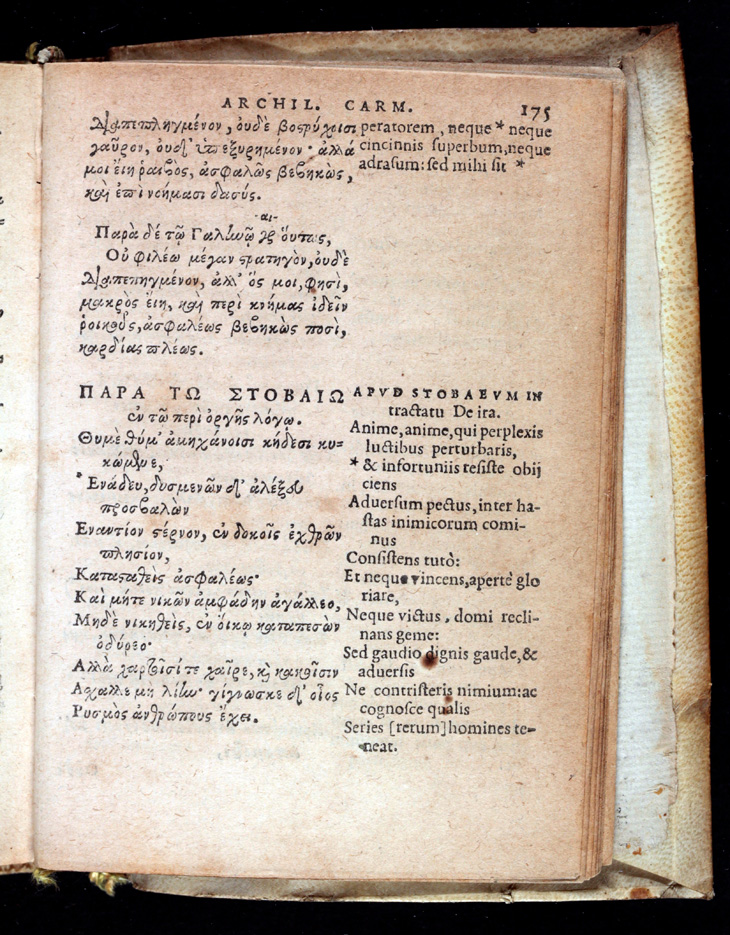 ARCHIL. CARM. 175
διαπεπληγμένον, ουδὲ βοςρύχοισι
γαῦρον, ουδ' ὑπεξυρημένον· ἀλλά
μοι είη ῥαιβὸς, ἀσφαλῶς βεβηκὼς,
καὶ ἐπὶ νοήμασι δασύς.
-αι-
Παρὰ δὲ τῷ Γαλίωῷ ούτως,
Οὐ φιλέω μέγαν ςρατηγὸν, ουδὲ
διαπεπηγμένον, ἀλλ' ὅς μοι, φησὶ,
μακρὸς είη, καὶ περὶ κνήμας ἰδεῖν
ῥοικὸς, ἀσφαλέως βεβηκὼς ποσὶ,
καρδίας πλέως.
ΠΑΡΑ ΤΩ ΣΤΟΒΑΙΩ
ἐν τῷ περὶ ὀργῆς λόγῳ.
Θυμὲ θύμ' ἀμηχάνοισι κήδεσι κυ-
κώμθμε,
*Ενάδευ, δυσμενῶν δ' ἀλέξευ
προσβαλὼν
Εναντίον ςέρνον, ἐν δοκοῖς ἐχθρῶν
πλησίον,
Καταςαθεὶς ἀσφαλέως·
Καὶ μήτε νικῶν ἀμφάδην ἀγάλλεο,
Μηδὲ νικηθεὶς, ἐν οίκῳ καταπεσὼν
ὀδύρεο·
Αλλὰ χαρτοῖσί τε χαῖρε, κὶ κακοῖσιν
Ασχαλλε μὴ λίω· γίγνωσκε δ' οἷος
Ρυσμὸς ἀνθρώπους ἔχει.
peratorem, neque * neque
cincinnis superbum, neque
adrasum: sed mihi sit *
APVD STOBAEVM IN
tractatu De ira.
Anime, anime, qui perplexis
luctibus perturbaris,
* & infortuniis resiste obij
ciens
Aduersum pectus, inter ha-
stas inimicorum comi-
nus
Consistens tutò:
Et neque vincens, apertè glo
riare,
Neque victus, domi recli-
nans geme:
Sed gaudio dignis gaude, &
aduersis
Ne contristeris nimium: ac
cognosce qualis
Series [rerum] homines te-
neat.